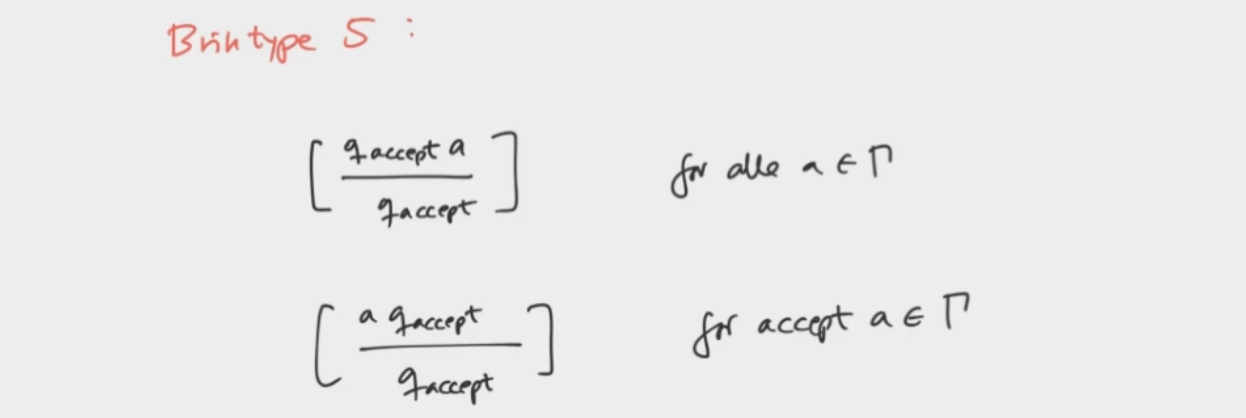 Briktype 5 :
[ q_accept a / q_accept ] for alle a ∈ Γ
[ a q_accept / q_accept ] for accept a ∈ Γ